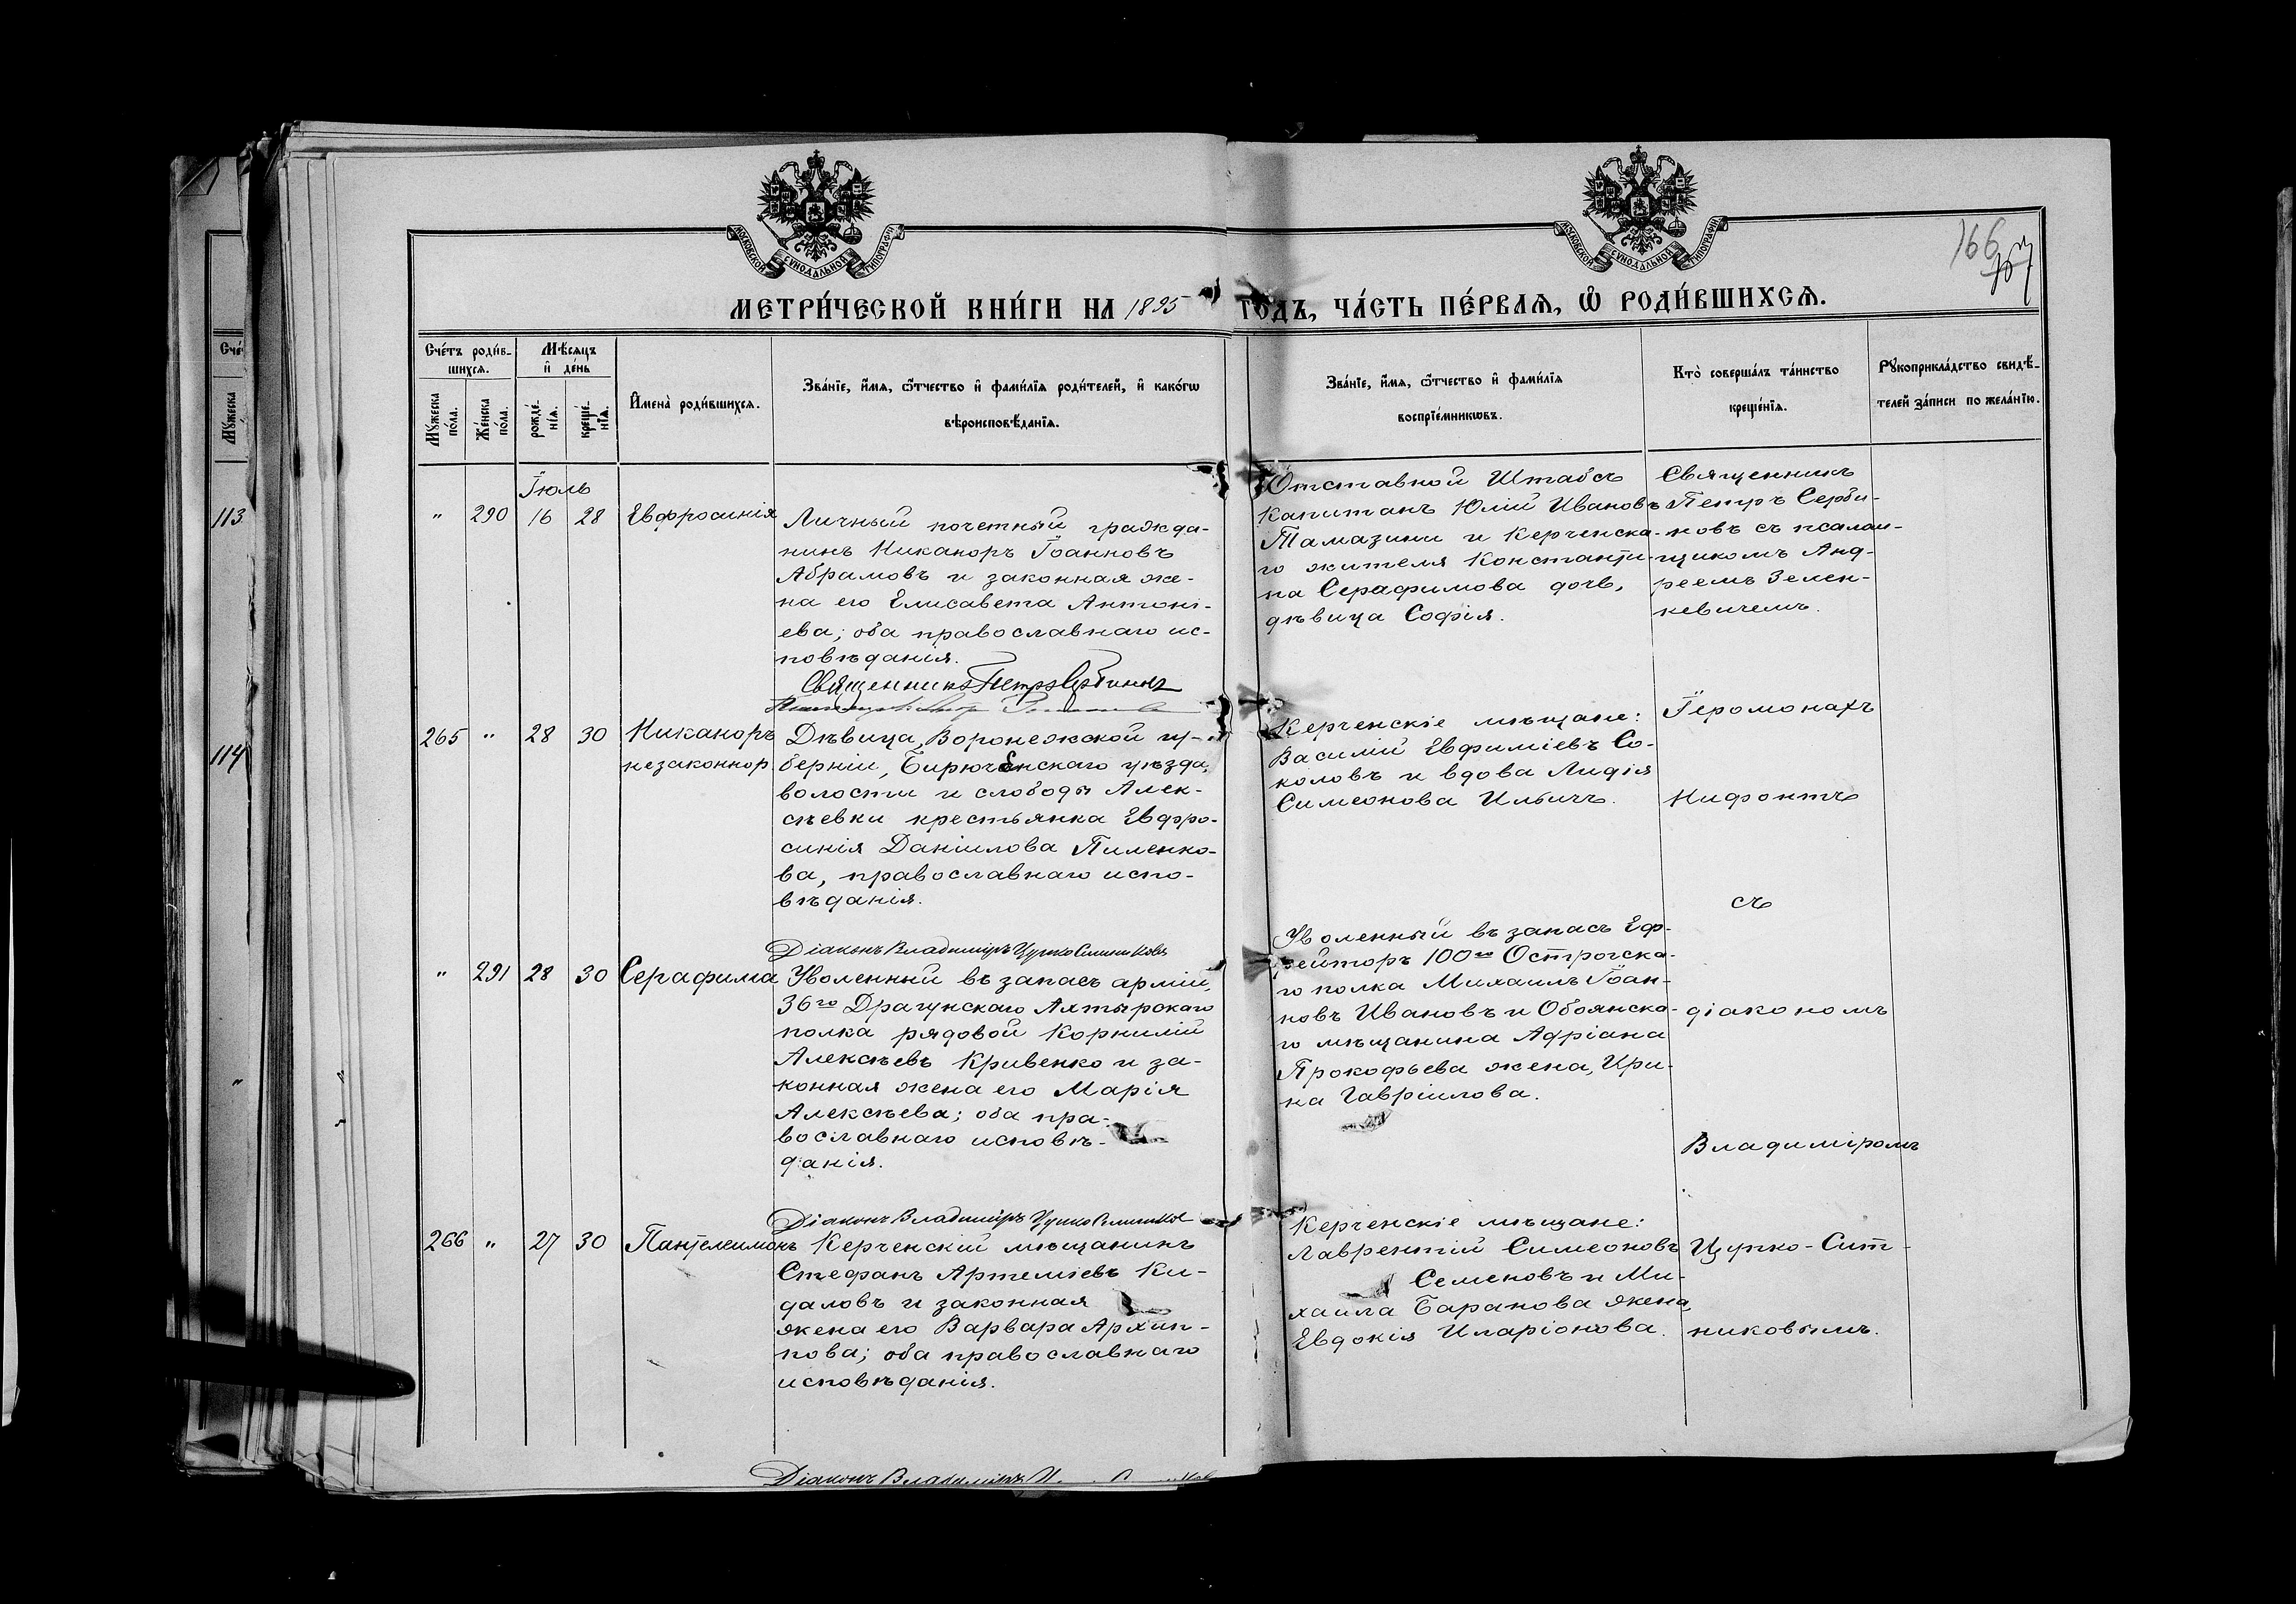 МОСКОВСКОЙ СѴНОДАЛЬНОЙ ТИПОГРАФІИ
МОСКОВСКОЙ СѴНОДАЛЬНОЙ ТИПОГРАФІИ
166
МЕТРИ́ЧЕСКОЙ КНИ́ГИ НА 1895 ГОДЪ, ЧА́СТЬ ПЕ́РВАѦ, Ѡ РОДИ́ВШИХСѦ.
Сче́тъ роди́в-
шихсѧ.
Мꙋжеска по́ла.
Же́нска по́ла.
Мѣ́сѧцъ и҆ де́нь
рожде́-
нїѧ.
креще́-
нїѧ.
И҆мена̀ роди́вшихсѧ.
Зва́нїе, и҆́мѧ, ѻ҆́тчество и҆ фами́лїѧ роди́телей, и҆ како́гѡ
вѣроисповѣ́данїѧ.
Зва́нїе, и҆́мѧ, ѻ҆́тчество и҆ фами́лїѧ
воспрїе́мникѡвъ.
Кто̀ соверша́лъ та́инство
креще́нїѧ.
Рꙋкоприкла́дство свидѣ́-
телей за́писи по жела́нїю.
Сче́
Мꙋжеска
113
114
Іюль
" 290 16 28 Евфросинія
Личный почетный гражда-
нинъ Никаноръ Іоанновъ
Абрамовъ и законная же-
на его Елисавета Антоні-
ева; оба православнаго ис-
повѣданія.
Священникъ Петръ Сербиновъ
Отставной Штабсъ
Капитанъ Юлій Ивановъ
Тамазини и Керченска-
го жителя Константи-
на Серафимова дочь,
дѣвица Софія.
Священникъ
Петръ Серби-
новъ съ псалом-
щикомъ Анд-
реемъ Зелен-
кевичемъ.
265 " 28 30 Никаноръ
незаконнор.
Дѣвица, Воронежской гу-
берніи, Бирюченскаго уѣзда,
волости и слободы Алек-
сѣевки крестьянка Евфро-
синія Даніилова Пиленко-
ва, православнаго испо-
вѣданія.
Діаконъ Владиміръ Цурко-Ситниковъ
Керченскіе мѣщане:
Василій Евфиміевъ Со-
коловъ и вдова Лидія
Симеонова Ильичъ.
Іеромонахъ
Нифонтъ
съ
" 291 28 30 Серафима
Уволенный въ запасъ арміи,
36го Драгунскаго Ахтырскаго
полка рядовой Корнилій
Алексѣевъ Кривенко и за-
конная жена его Марія
Алексѣева; оба пра-
вославнаго исповѣ-
данія.
Діаконъ Владиміръ Цурко-Ситниковъ
Уволенный въ запасъ Еф-
рейторъ 100го Острогска-
го полка Михаилъ Іоан-
новъ Ивановъ и Обоянска-
го мѣщанина Адріана
Прокофьева жена, Ири-
на Гавріилова.
діакономъ
Владиміромъ
266 " 27 30 Пантелеимонъ
Керченскій мѣщанинъ
Стефанъ Артеміевъ Ки-
даловъ и законная
жена его Варвара Архип-
пова; оба православнаго
исповѣданія.
Діаконъ Владиміръ
Керченскіе мѣщане:
Лаврентій Симеоновъ
Семеновъ и Ми-
хаила Баранова жена,
Евдокія Иларіонова.
Цурко-Сит-
никовымъ.